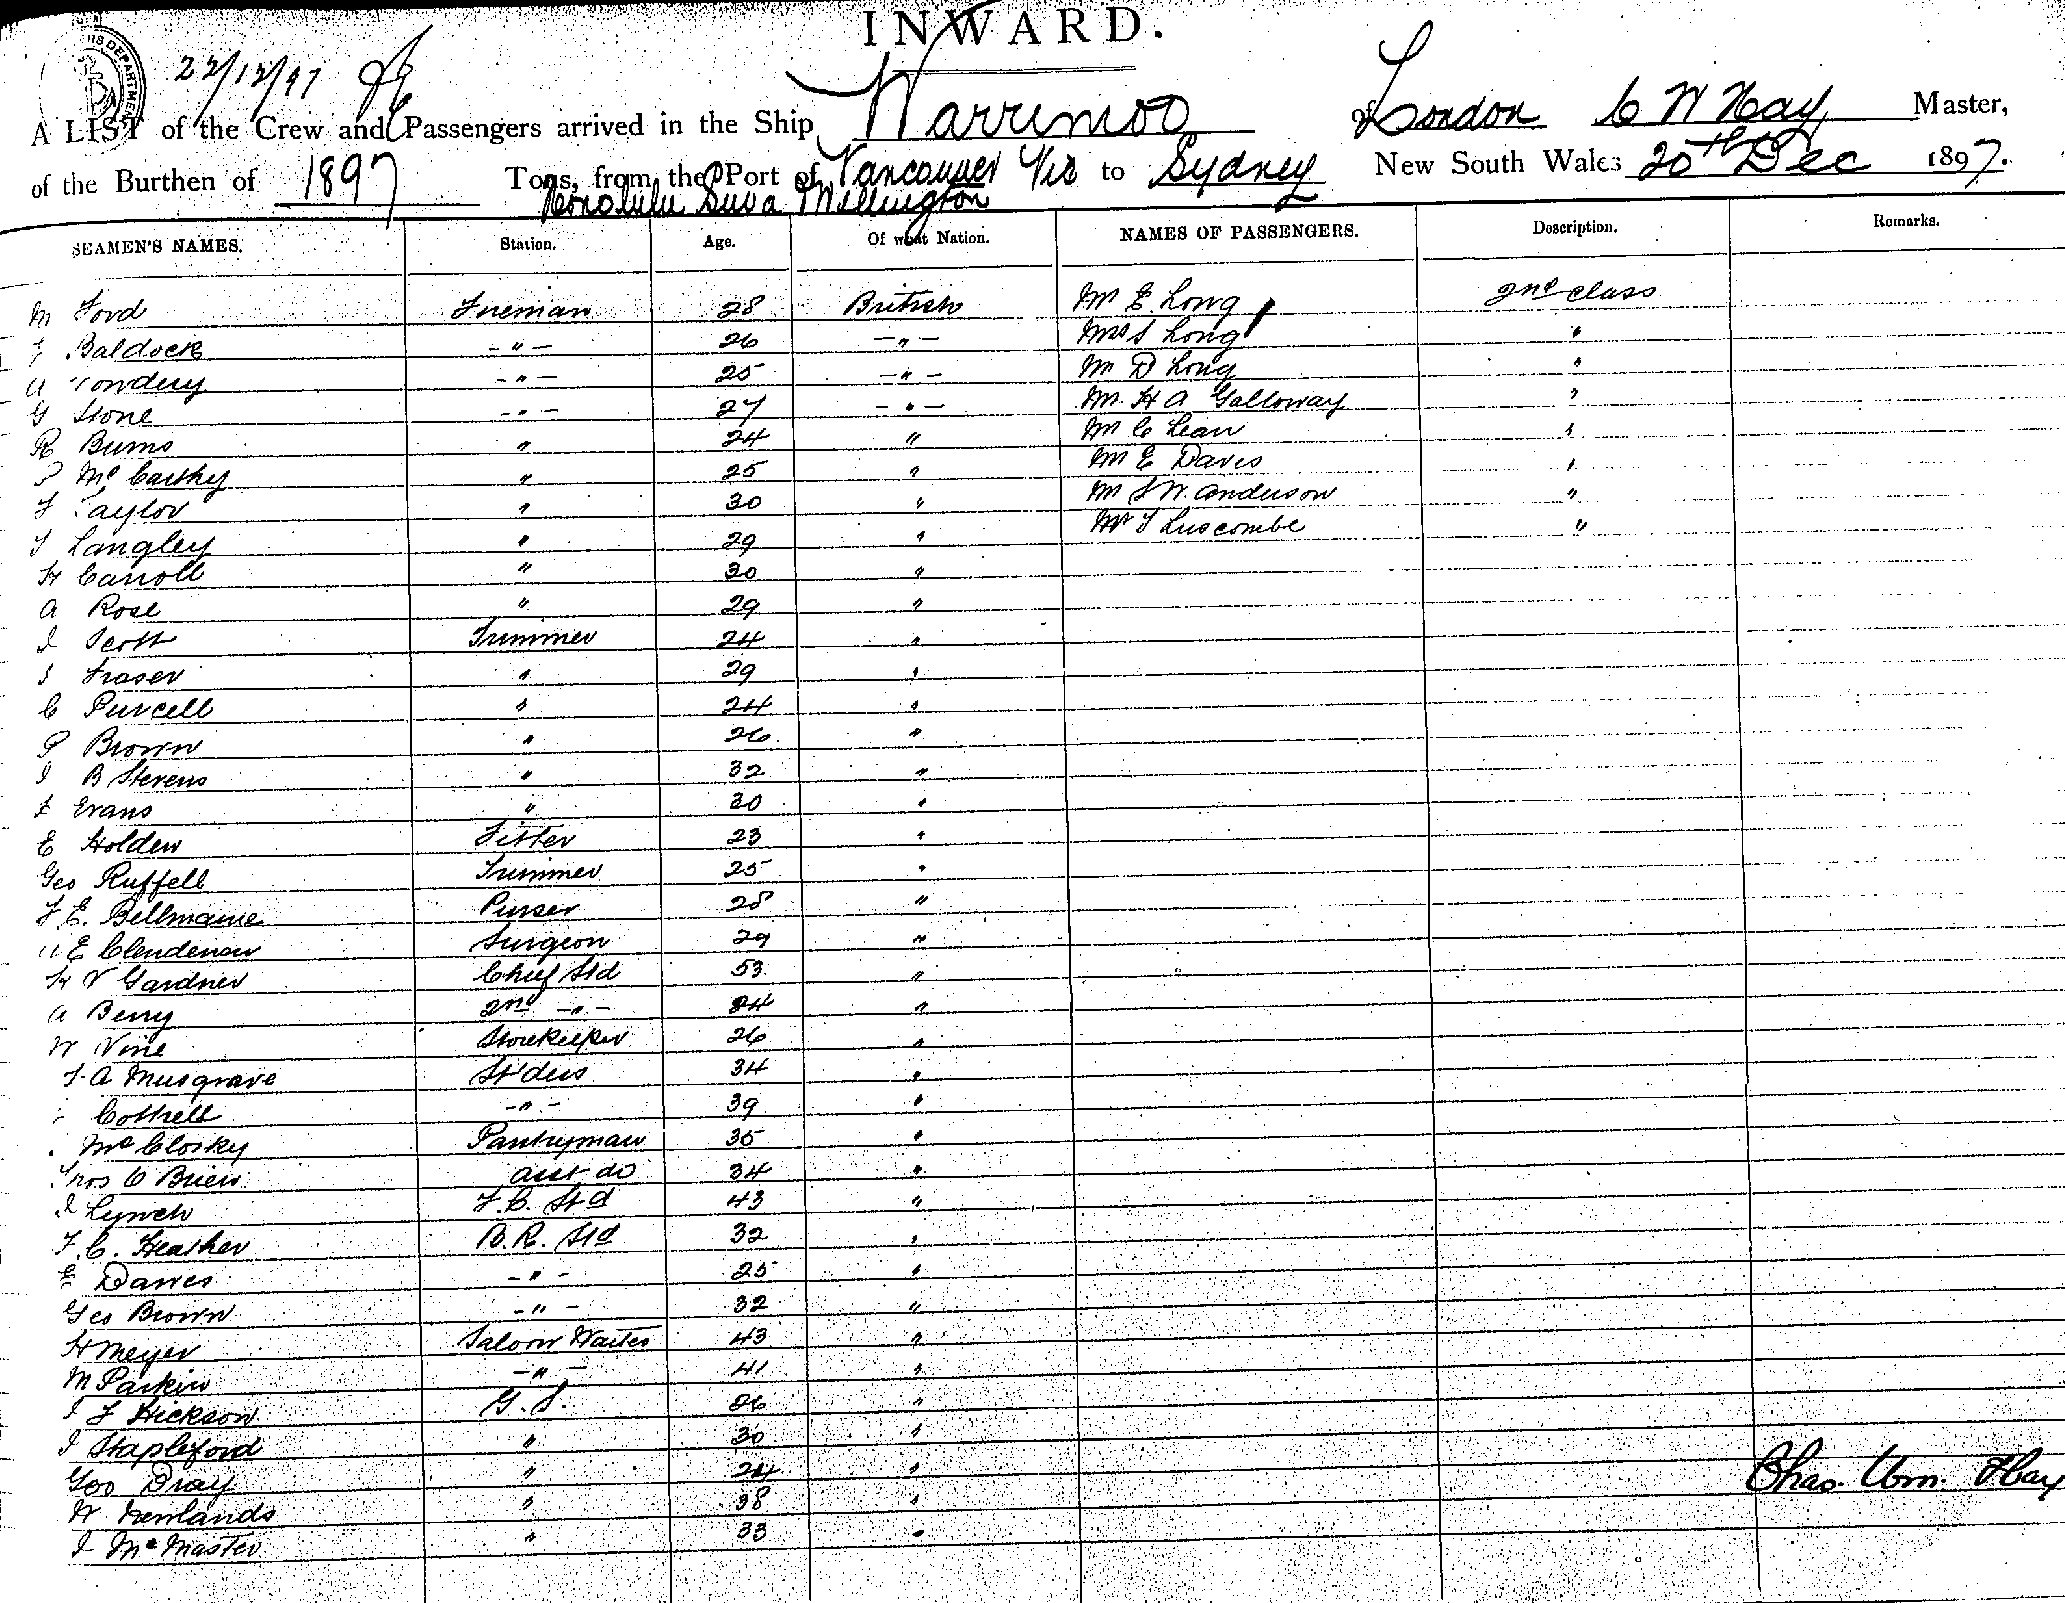 INWARD.
22/12/97
A LIST of the Crew and Passengers arrived in the Ship Warrimoo of London C W Hay Master,
of the Burthen of 1897 Tons, from the Port of Vancouver Via to Sydney New South Wales 20th Dec 1897.
Honolulu Suva Wellington
SEAMEN'S NAMES. Station. Age. Of what Nation. NAMES OF PASSENGERS. Description. Remarks.
M Ford Fireman 28 British Mr E. Long 2nd class
Baldock -"- 26 -"- Mrs S Long "
a -"- 25 -"- Mr D Long "
G Stone -"- 27 -"- Mr H A Galloway "
R Burns " 24 " Mr C Lean "
McCarthy " 25 " Mr E Davis "
F Taylor " 30 " Mr S W. Anderson "
Langley " 29 " Mr Luscombe "
H Carroll " 30 "
a Rose " 29 "
J Scott Trimmer 24 "
Fraser " 29 "
C Purcell " 24 "
P Brown " 26 "
J B Stevens " 32 "
Evans " 30 "
E Holden Fitter 23 "
Geo Ruffell Trimmer 25 "
F. E. Bellmaine Purser 28 "
E Clendenan Surgeon 29 "
H V Gardner Chief Std 53 "
a Berry 2nd -"- 24 "
W Vine Storekeeper 26 "
A Musgrave St'dess 34 "
Cottrell -"- 39 "
McClosky Pantryman 35 "
Thos O Brien asst do 34 "
J Lynch F.C. Std 43 "
F. C. Heather B.R. Std 32 "
E Dawes -"- 25 "
Geo Brown -"- 32 "
H Meyer Saloon Waiter 43 "
M Parkin -"- 41 "
J F Hickson G.S. 26 "
J Stapleford " 30 "
Geo Dray " 24 "
Chas. Wm. Hay
W Newlands " 38 "
J McMaster " 33 "